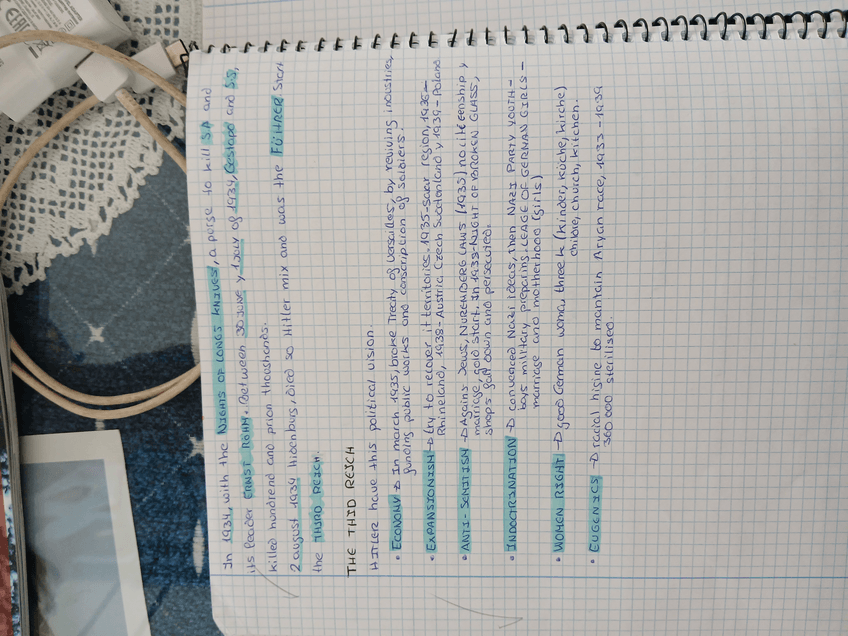 In 1934, with the NIGHTS OF LONGS KNIVES, a porse to kill SA and
its leader ERNST RÖHM. Between 30 JUNE y 1 JULY of 1934, Gestapo and SS,
killed hundrend and prion thoashonds.
2 august 1934 hidenburg, died so Hitler mix and was the FÜHRER. Start
the THIRD REICH.
THE THID REICH
HITLER have this political vision.
• ECONOMY → In march 1935, broke Treaty of Versailles, by reviving industries,
funding public works and conscription of soldiers.
• EXPANSIONISM → try to recover it territories. 1935-saar region, 1936-
Rhineland, 1938-Austria Czech Suatenland y 1939-Poland
• ANTI-SEMITISM → Agains Jews, NUREMBERG LAWS (1935) no citizenship y
marriage, gold start. In 1938-NIGHT OF BROKEN GLASS,
shops got down and persecuted.
• INDOCTRINATION → convenced Nazi ideas, then NAZI PARTY YOUTH-
boys military preparing, LEAGE OF GERMAN GIRLS-
marriage and motherhood (girls)
• WOMEN RIGHT → good German woma, three k (kinder, küche, kirche)
childe, church, kitchen.
• EUGENICS → racial higine to maintain Aryan race, 1933-1939
360 000 sterilised.